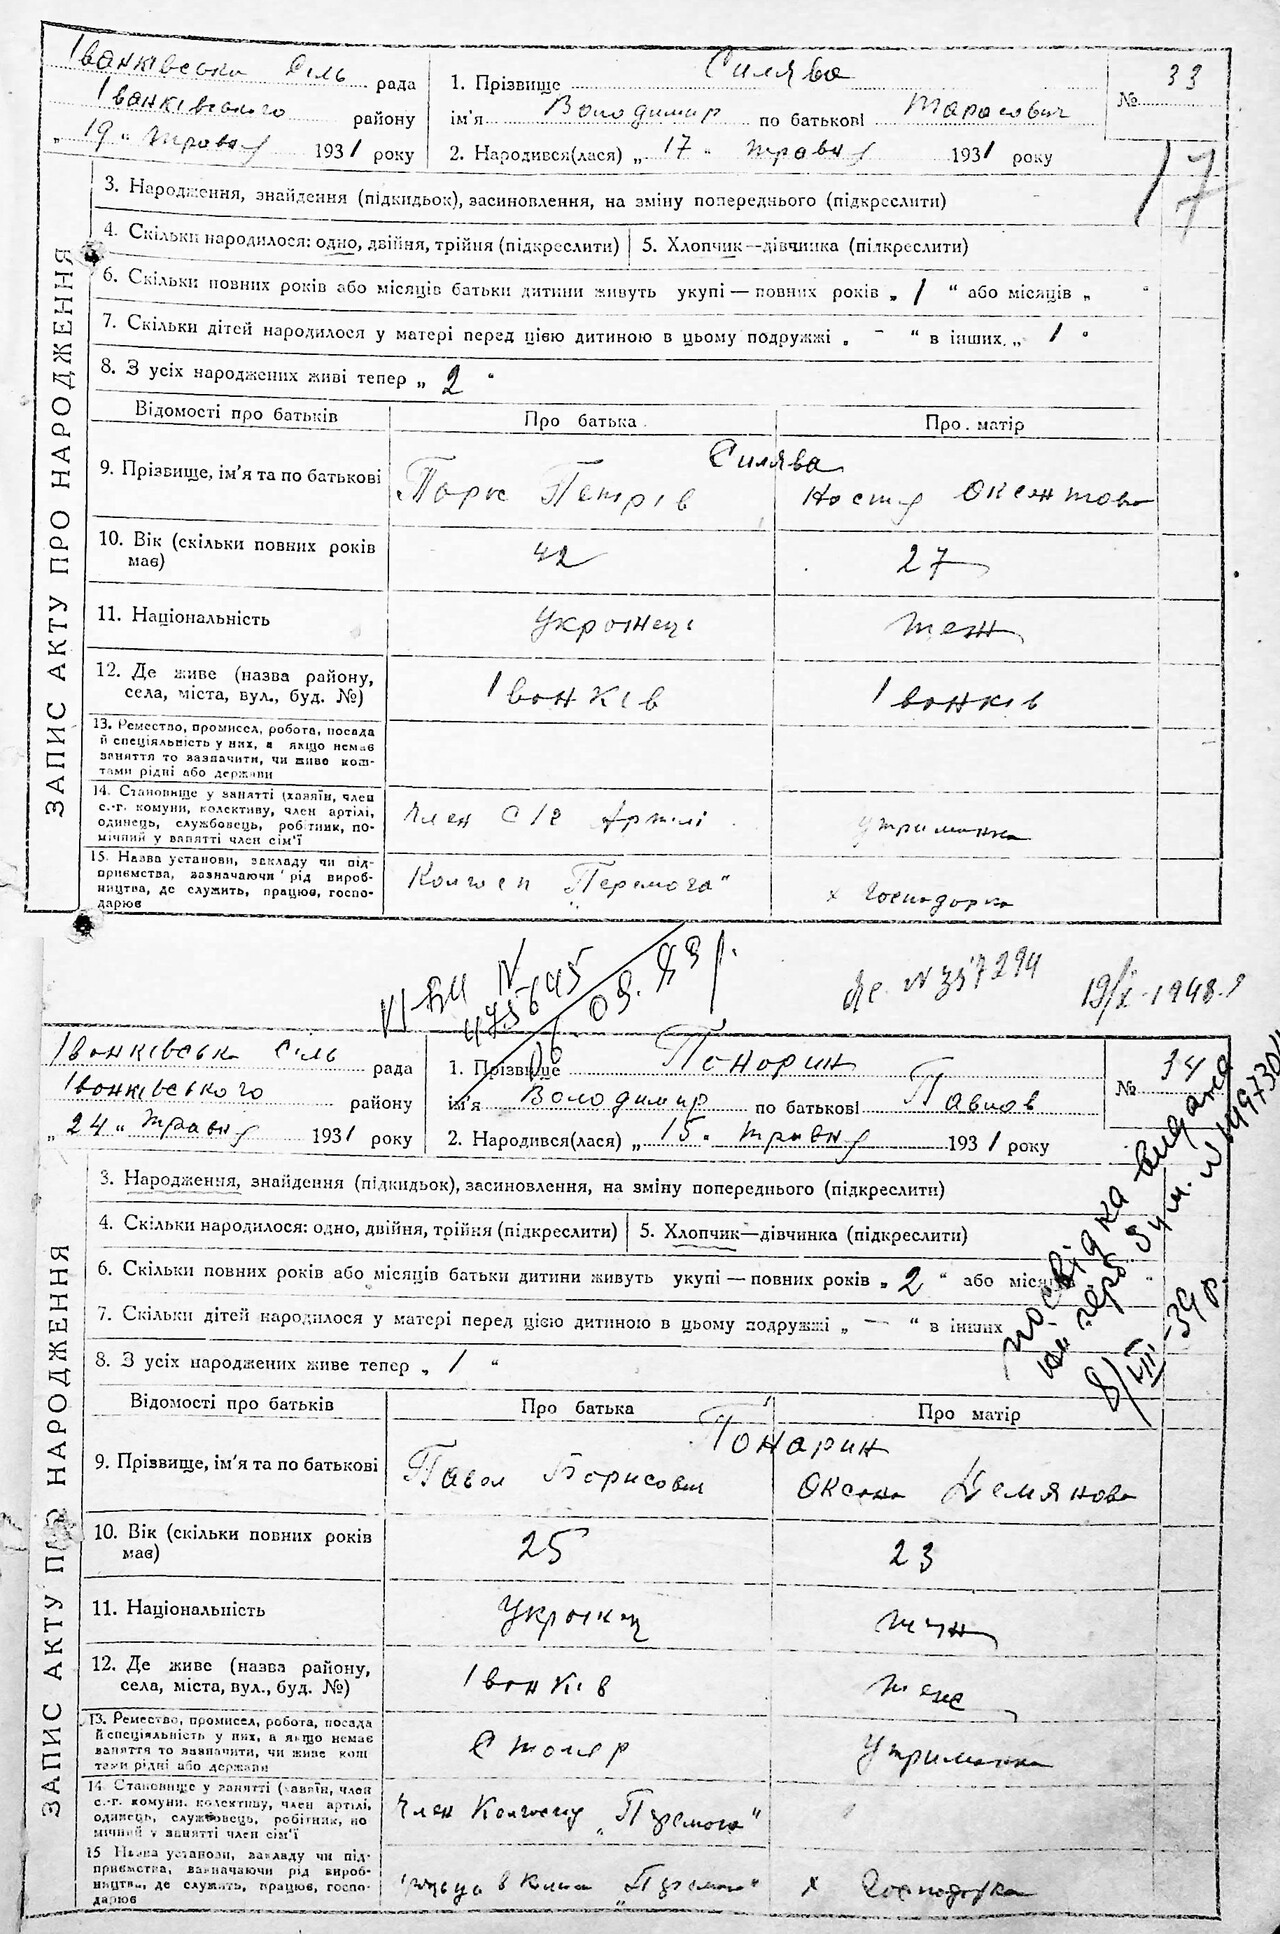 Іванківська сіль рада
Іванківського району
„ 19 “ травня 1931 року
1. Прізвище Силява
ім'я Володимир по батькові Тарасович
2. Народився(лася) „ 17 “ травня 1931 року
№ 33
17
ЗАПИС АКТУ ПРО НАРОДЖЕННЯ
3. Народження, знайдення (підкидьок), засиновлення, на зміну попереднього (підкреслити)
4. Скільки народилося: одно, двійня, трійня (підкреслити) 5. Хлопчик—дівчинка (підкреслити)
6. Скільки повних років або місяців батьки дитини живуть укупі — повних років „ 1 “ або місяців „ “
7. Скільки дітей народилося у матері перед цією дитиною в цьому подружжі „ — “ в інших „ 1 “
8. З усіх народжених живі тепер „ 2 “
Відомості про батьків Про батька Про матір
Силява
9. Прізвище, ім'я та по батькові Тарас Петрів Настя Оксентова
10. Вік (скільки повних років має) 42 27
11. Національність Українець теж
12. Де живе (назва району, Іванків Іванків
села, міста, вул., буд. №)
13. Ремество, промисел, робота, посада
й спеціяльність у них, а якщо немає
заняття то зазначити, чи живе кош-
тами рідні або держави
14. Становище у занятті (хазяїн, член
с.-г. комуни, колективу, член артілі, член С/г Артілі утриманка
одинець, службовець, робітник, по-
мічний у занятті член сім'ї
15. Назва установи, закладу чи під-
приємства, зазначаючи рід вироб- Колгосп „Перемога“ х Господарка
ництва, де служить, працює, госпо-
дарює
№ 357294 19/X-1948 р
475645
09.
Іванківська сіль рада
Іванківського району
„ 24 “ травня 1931 року
1. Прізвище Понарин
ім'я Володимир по батькові Павлов
2. Народився(лася) „ 15 “ травня 1931 року
№ 34
посвідка видана
8/VIII-39 р.
ЗАПИС АКТУ ПРО НАРОДЖЕННЯ
3. Народження, знайдення (підкидьок), засиновлення, на зміну попереднього (підкреслити)
4. Скільки народилося: одно, двійня, трійня (підкреслити) 5. Хлопчик—дівчинка (підкреслити)
6. Скільки повних років або місяців батьки дитини живуть укупі — повних років „ 2 “ або місяців “
7. Скільки дітей народилося у матері перед цією дитиною в цьому подружжі „ — “ в інших
8. З усіх народжених живе тепер „ 1 “
Відомості про батьків Про батька Про матір
Понарин
9. Прізвище, ім'я та по батькові Павел Борисович Оксана Демянова
10. Вік (скільки повних років має) 25 23
11. Національність Українец теж
12. Де живе (назва району, Іванків теж
села, міста, вул., буд. №)
13. Ремество, промисел, робота, посада
й спеціяльність у них, а якщо немає Столяр утриманка
заняття то зазначити, чи живе кош
тами рідні або держави
14. Становище у занятті (хазяїн, член
с.-г. комуни, колективу, член артілі, член Колгоспу „Перемога“
одинець, службовець, робітник, по
мічний у занятті член сім'ї
15 Назва установи, закладу чи під-
приємства, зазначаючи рід вироб-
ництва, де служить, працює, госпо- в „Перемога“ х Господарка
дарює